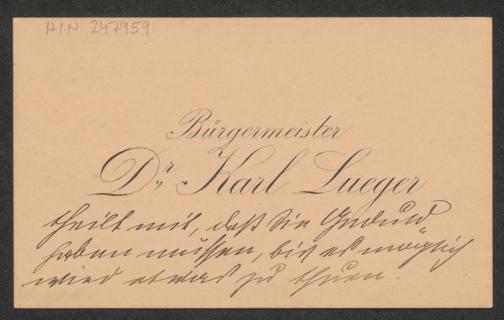 H.I.N. 247959
Bürgermeister
Dr. Karl Lueger
theilt mit, daß Sie Geduld
haben müssen, bis es möglich
wird etwas zu thuen.